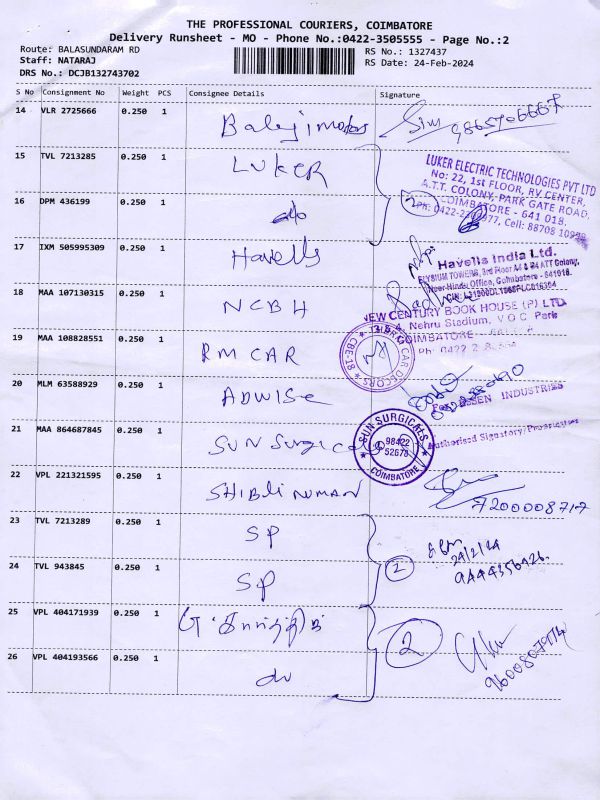 THE PROFESSIONAL COURIERS, COIMBATORE
Delivery Runsheet - MO - Phone No.:0422-3505555 - Page No.:2
Route: BALASUNDARAM RD
RS No.: 1327437
Staff: NATARAJ
RS Date: 24-Feb-2024
DRS No.: DCJB132743702
S No Consignment No Weight PCS Consignee Details Signature
14 VLR 2725666 0.250 1 Balaji motors
15 TVL 7213285 0.250 1 LUKER
LUKER ELECTRIC TECHNOLOGIES PVT LTD
No: 22, 1st FLOOR, RV CENTER,
A.T.T. COLONY, PARK GATE ROAD,
COIMBATORE - 641 018.
16 DPM 436199 0.250 1 2
17 IXM 505995309 0.250 1 Havells
Havells India Ltd.
ELYSIUM TOWERS, 3rd Floor A4 & ATT Colony,
Near Hindu Office, Coimbatore - 641018.
18 MAA 107130315 0.250 1 NCBH
NEW CENTURY BOOK HOUSE (P) LTD
Nehru Stadium, V O C Park
COIMBATORE
19 MAA 108828551 0.250 1 RM CAR
CAR DECORS
20 MLM 63588929 0.250 1 ADWISE
INDUSTRIES
21 MAA 864687845 0.250 1 SUN Surgicals
SUN SURGICALS
98422
52678
COIMBATORE
Authorised Signatory/
22 VPL 221321595 0.250 1 SHIBLI NUMAN
7200008717
23 TVL 7213289 0.250 1 SP
24/2/24
24 TVL 943845 0.250 1 SP 2
9444356426
25 VPL 404171939 0.250 1
26 VPL 404193566 0.250 1 do 2